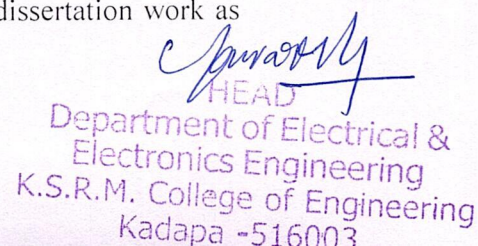 dissertation work as
HEAD
Department of Electrical &
Electronics Engineering
K.S.R.M. College of Engineering
Kadapa -516003